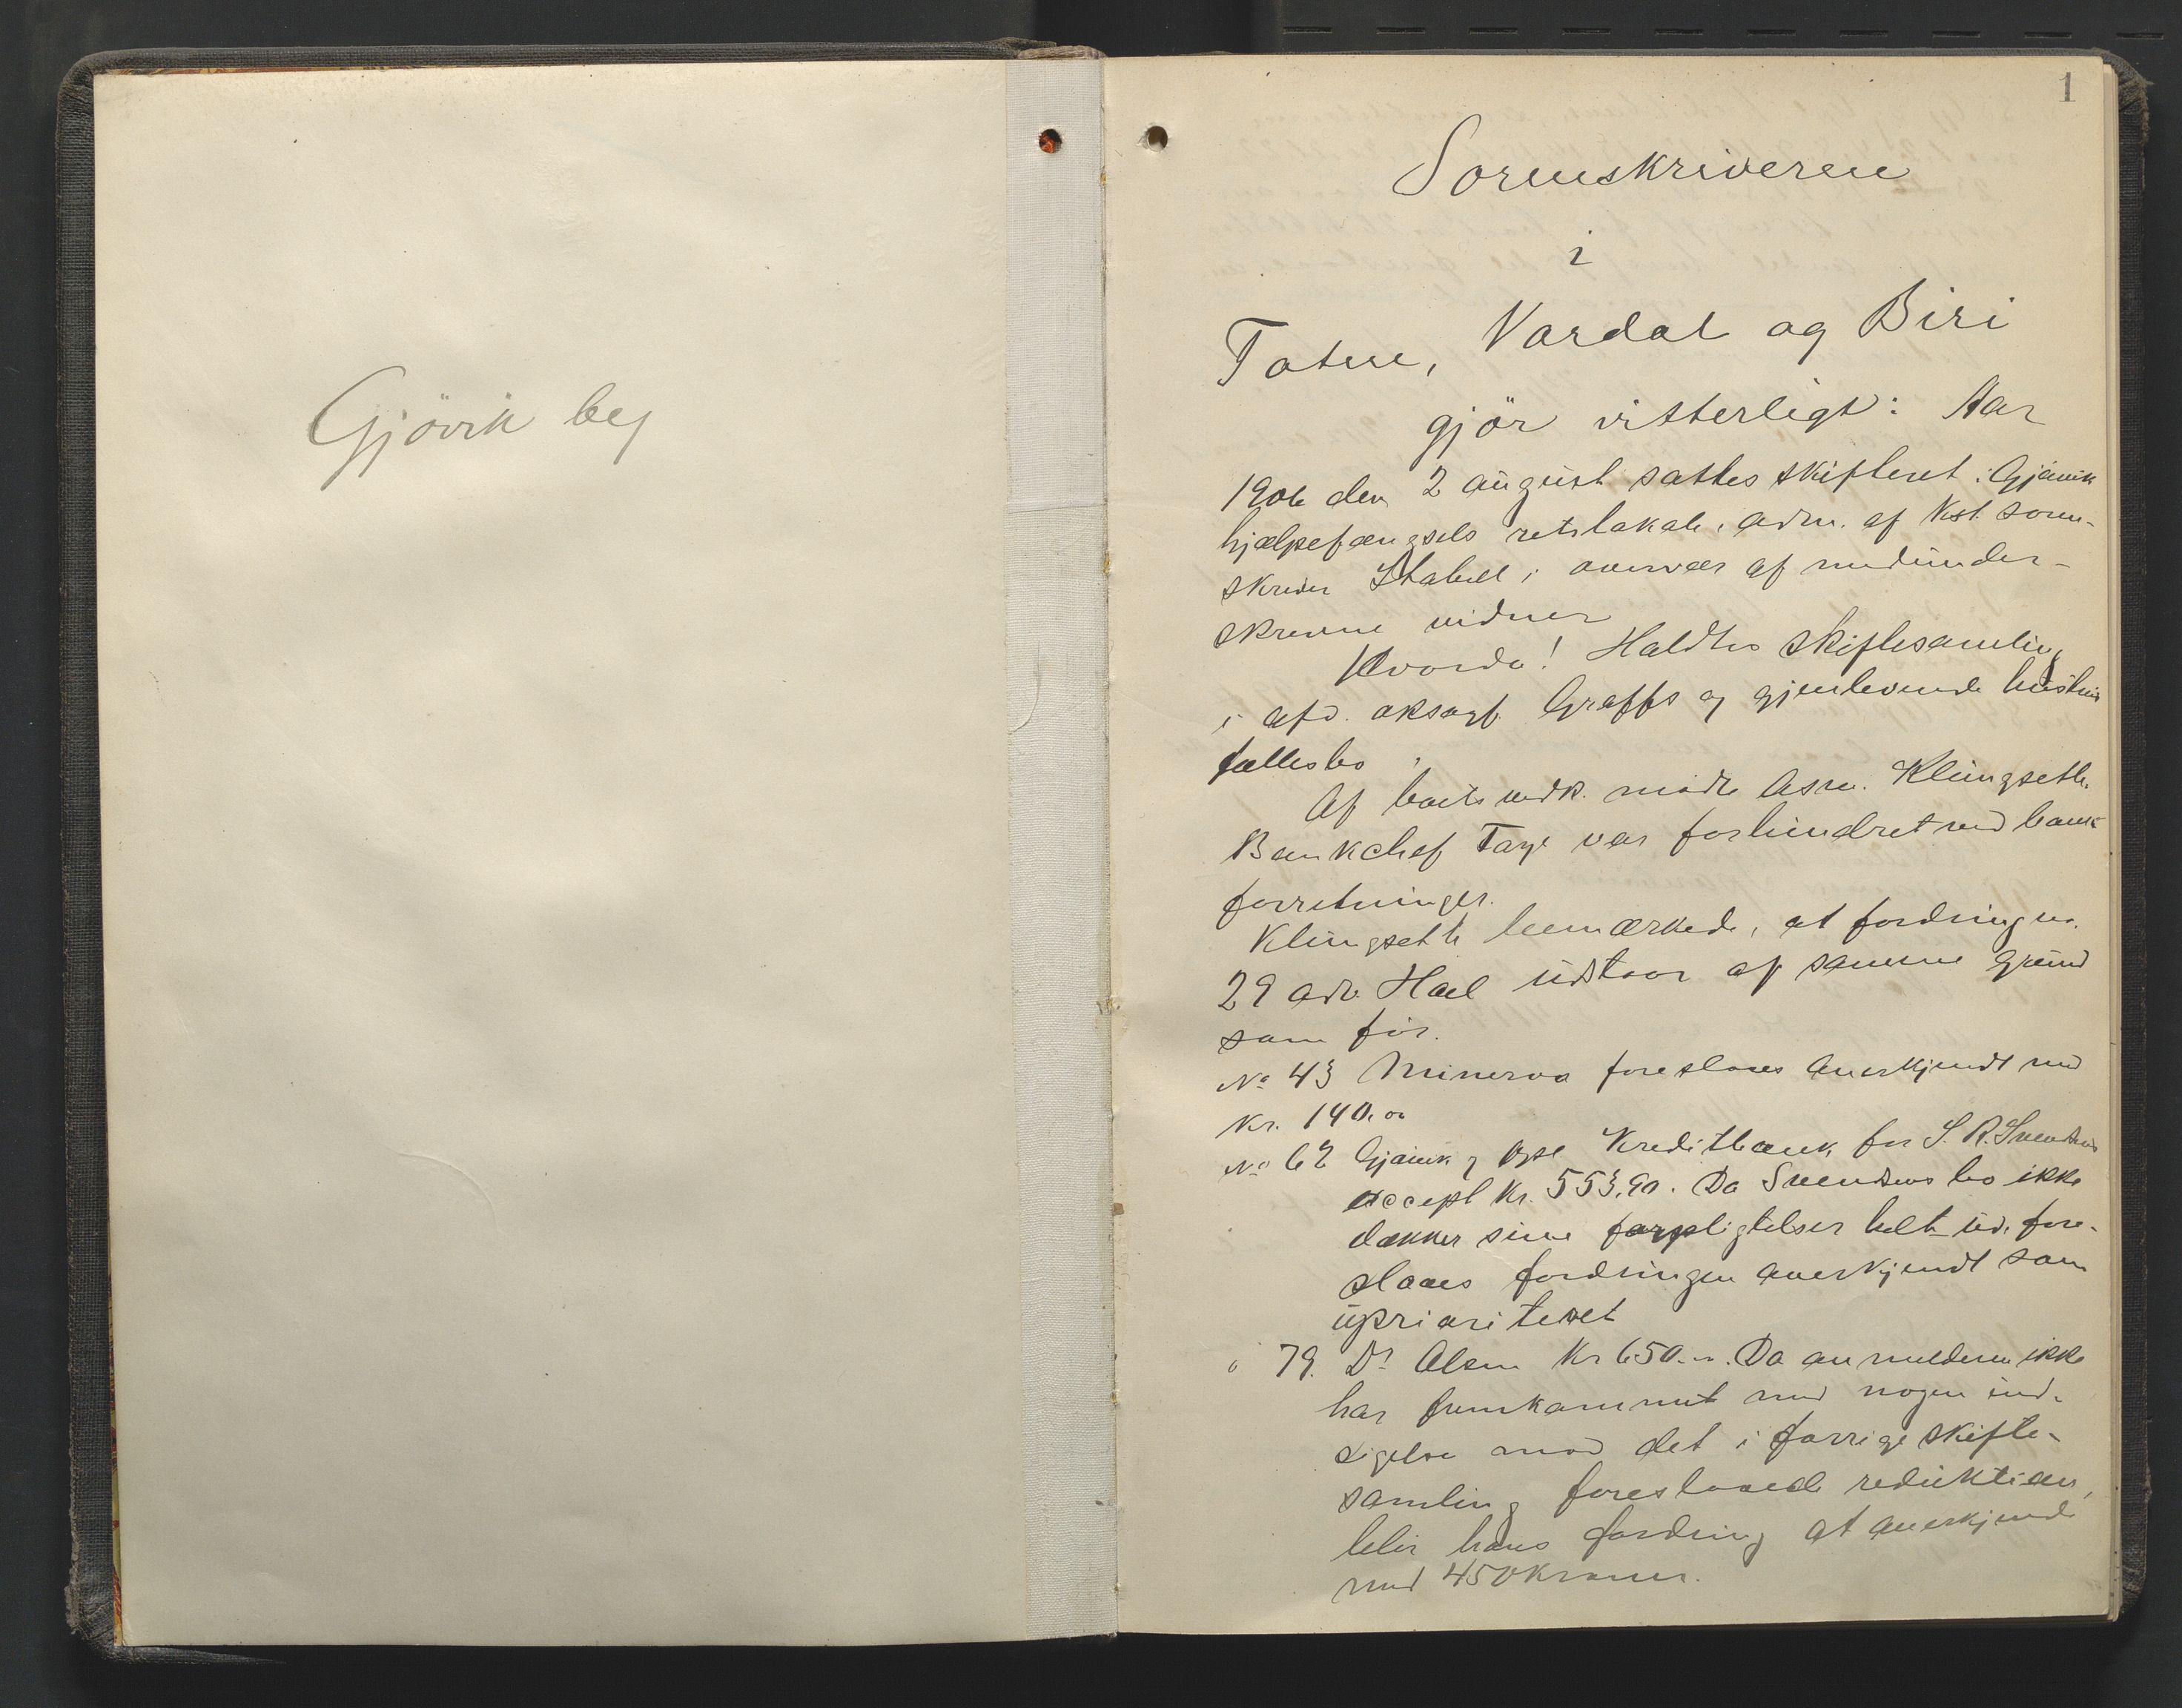 Gjövik by
1
Sorenskriveren
i
Toten, Vardal og Biri
gjör vitterligt: Aar
1906 den 2 august sattes skifteret i Gjövik
hjælpefængsels retslokale, adm. af kst. soren-
skriver Stabell i overvær af medunder-
skrevne vidner
Hvorda! Holdtes skiftesamling
i afd. oksagf. Graffs og gjenlevende hustrus
fællesbo
Af boets vedk. mödte Asm. Klungseth.
Bankchef Tage var forhindret ved bank
forretninger.
Klungseth bemærkede, at fordring no.
29 adv. Hoel udstaar af samme grund
som för.
No 43 Minerva foreslaaes anerkjendt med
kr. 140.00
No 62 Gjövik og Opl Kreditbank for S. R. Svendsens
accept kr. 553,90. Da Svendsens bo ikke
dækker sine forpligtelser helt ud, fore-
slaaes fordringen anerkjendt som
uprioriteret
" 79. Dr Olsen kr 650.00. Da anmelderen ikke
har fremkommet med nogen ind-
sigelse mod det i forrige skifte-
samling foreslaaede reduktion,
blir hans fordring at anerkjende
med 450 kroner.